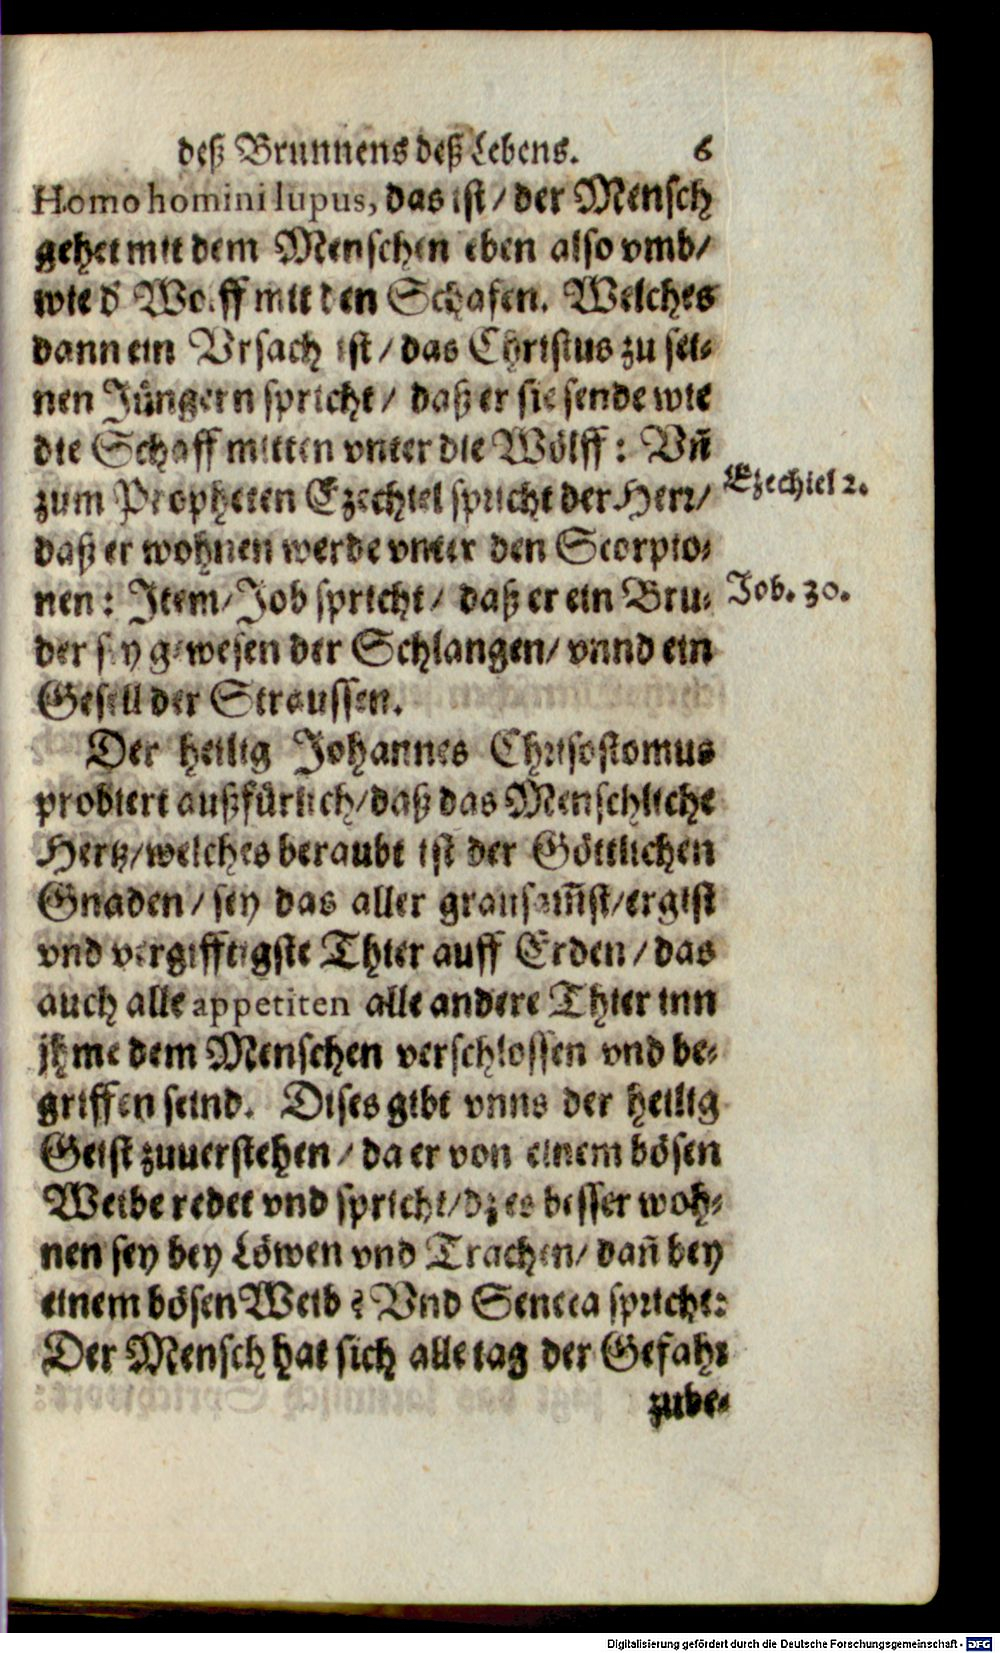 deß Brunnens deß Lebens. 6
Homo homini lupus, das ist / der Mensch
gehet mit dem Menschen eben also vmb/
wie d' Wolff mit den Schafen. Welches
dann ein Vrsach ist / das Christus zu sei-
nen Jüngern spricht / daß er sie sende wie
die Schaff mitten vnter die Wölff: Vñ
zum Propheten Ezechiel spricht der Herr/
Ezechiel 2.
daß er wohnen werde vnter den Scorpio-
nen: Item/ Job spricht / daß er ein Bru-
Job. 30.
der sey gewesen der Schlangen/ vnnd ein
Gesell der Straussen.
Der heilig Johannes Chrisostomus
probiert außfürlich/ daß das Menschliche
Hertz/ welches beraubt ist der Göttlichen
Gnaden / sey das aller grausam̃st/ ergist
vnd vergifftigste Thier auff Erden / das
auch alle appetiten alle andere Thier inn
jhme dem Menschen verschlossen vnd be-
griffen seind. Dises gibt vnns der heilig
Geist zuuerstehen / da er von einem bösen
Weibe redet vnd spricht/ dz es besser woh-
nen sey bey Löwen vnd Trachen/ dañ bey
einem bösen Weib? Vnd Seneca spricht:
Der Mensch hat sich alle tag der Gefahr
zube-
Digitalisierung gefördert durch die Deutsche Forschungsgemeinschaft - DFG